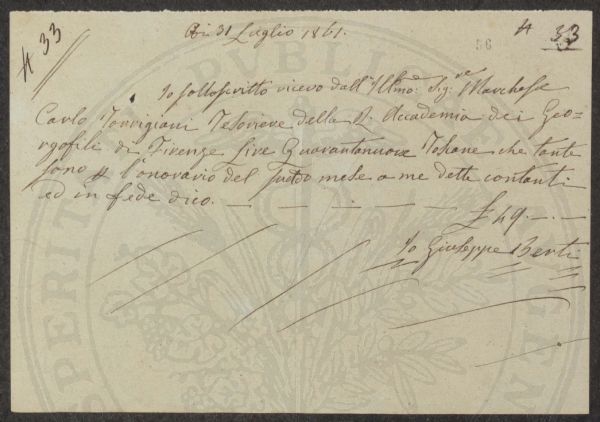 N 33
A dì 31 Luglio 1861.
56
N 33
Io sottoscritto ricevo dall'Illmo: Sigre Marchese
Carlo Torrigiani Tesoriere della R. Accademia dei Geo-
rgofili di Firenze Lire Quarantanove Toscane che tante
sono l'onorario del sudo mese a me dette contanti
ed in fede dico. — — . — . — —
£ 49. — . —
Io Giuseppe Berti